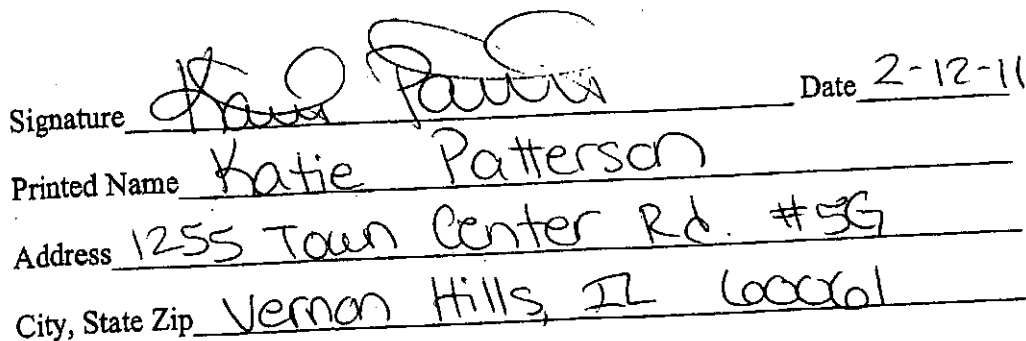 Signature Katie Patterson Date 2-12-11
Printed Name Katie Patterson
Address 1255 Town Center Rd. #5G
City, State Zip Vernon Hills, IL 60061